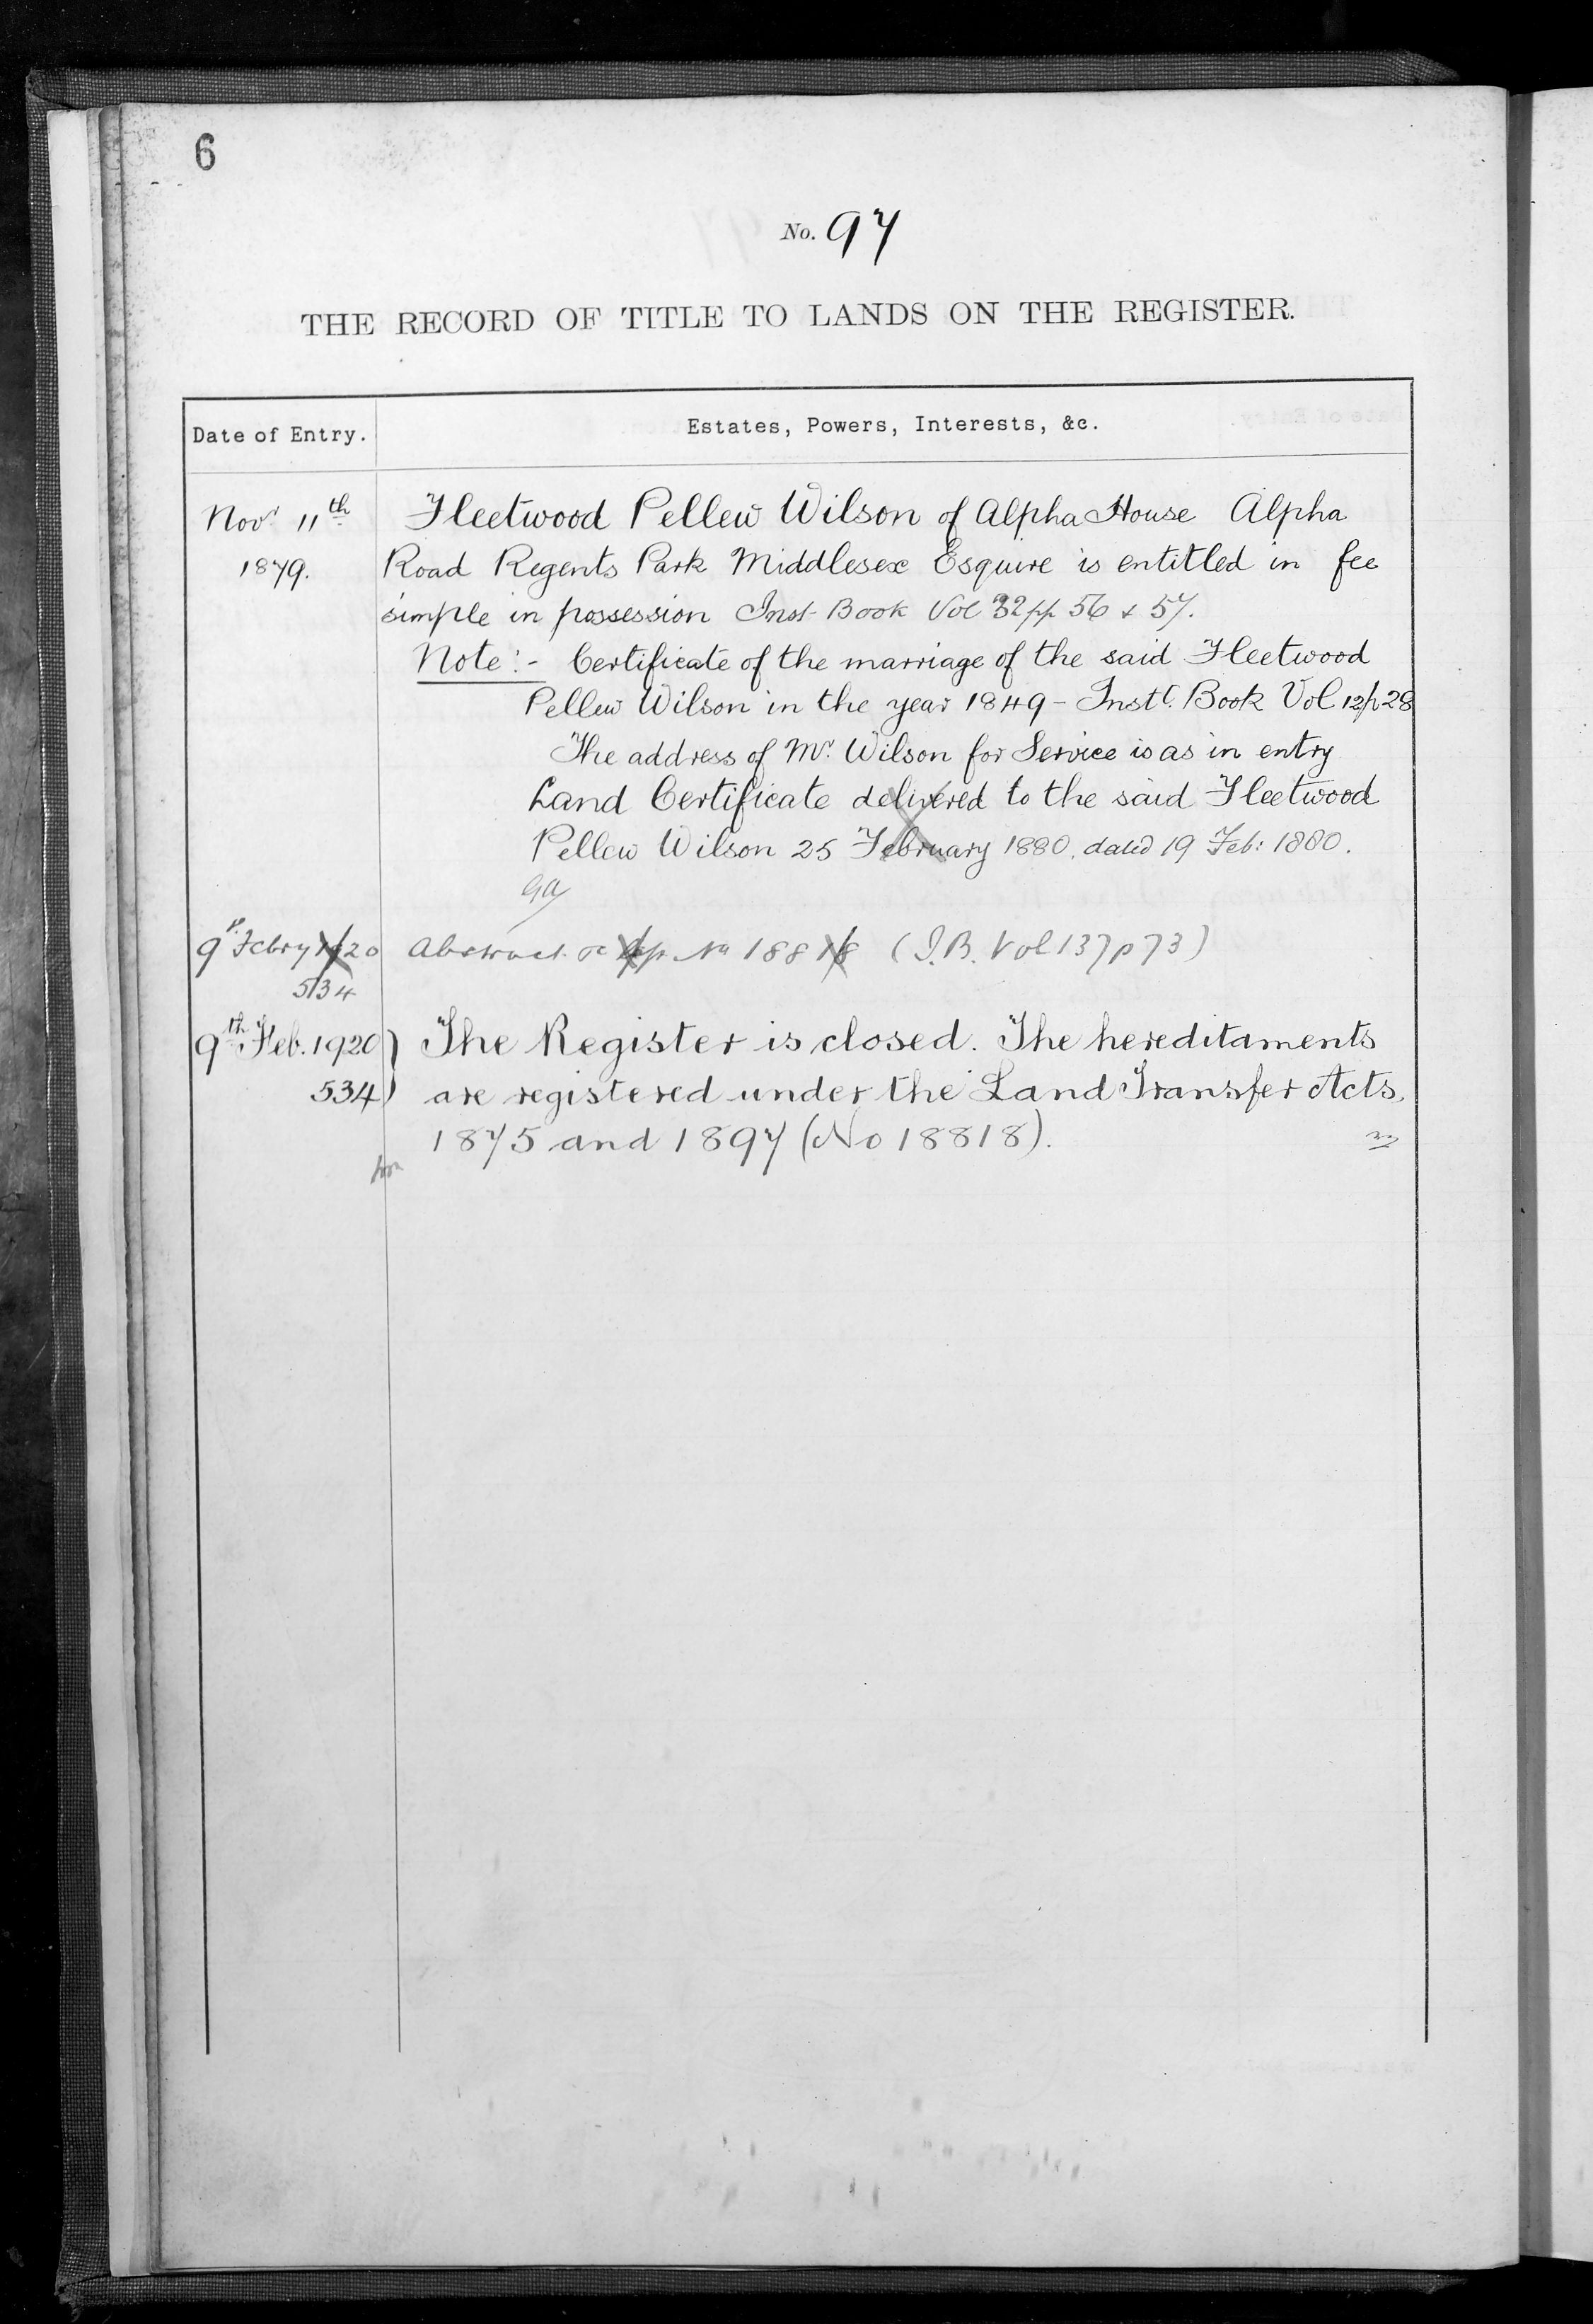 6
No. 97
THE RECORD OF TITLE TO LANDS ON THE REGISTER.
Date of Entry.
Estates, Powers, Interests, &c.
Novr 11th
1879.
Fleetwood Pellew Wilson of Alpha House Alpha
Road Regents Park Middlesex Esquire is entitled in fee
simple in possession Inst Book Vol 32 pp 56 & 57.
Note:- Certificate of the marriage of the said Fleetwood
Pellew Wilson in the year 1849 - Inst. Book Vol 12 p 28
The address of Mr. Wilson for Service is as in entry
Land Certificate delivered to the said Fleetwood
Pellew Wilson 25 February 1880. dated 19 Feb: 1880.
9th Febry 1920
534
Abstract of App No 18818 (I.B. Vol 137 p 73)
9th Feb. 1920)
534)
The Register is closed. The hereditaments
are registered under the Land Transfer Acts,
1875 and 1897 (No 18818).